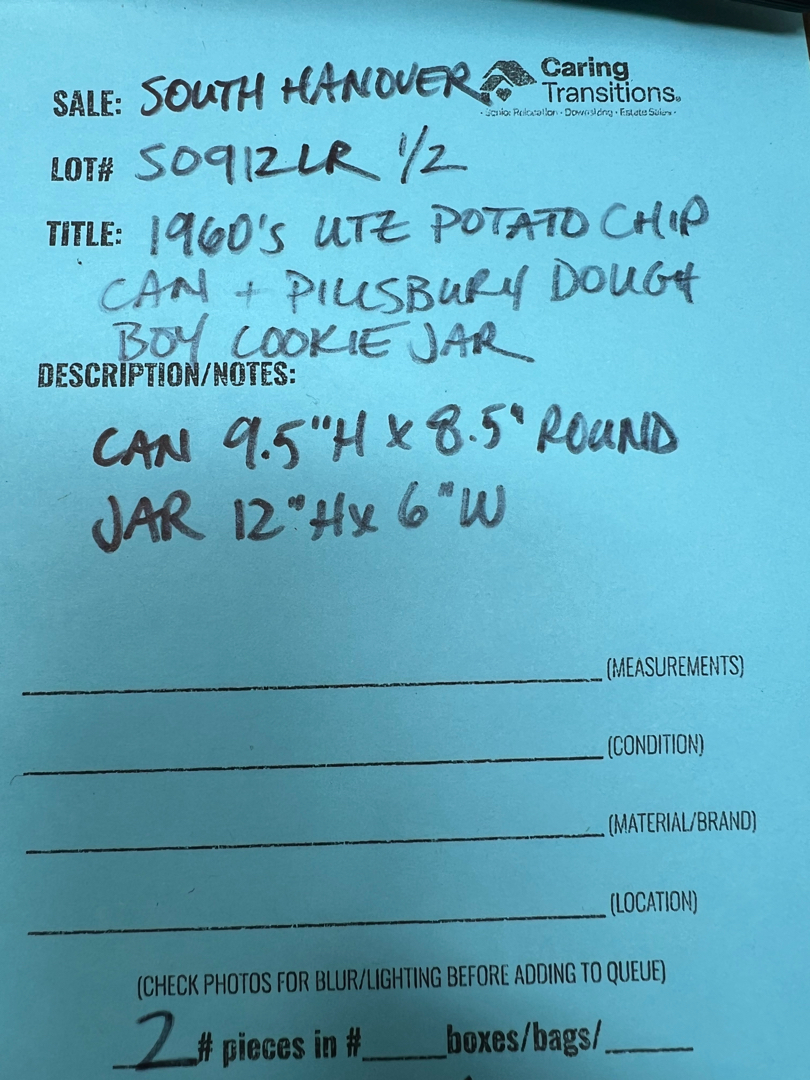 SALE: SOUTH HANOVER
Caring
Transitions®
• Senior Relocation • Downsizing • Estate Sales •
LOT# SO912LR 1/2
TITLE: 1960's UTZ POTATO CHIP
CAN + PILLSBURY DOUGH
BOY COOKIE JAR
DESCRIPTION/NOTES:
CAN 9.5"H X 8.5" ROUND
JAR 12"H x 6"W
(MEASUREMENTS)
(CONDITION)
(MATERIAL/BRAND)
(LOCATION)
(CHECK PHOTOS FOR BLUR/LIGHTING BEFORE ADDING TO QUEUE)
2 # pieces in #____boxes/bags/____